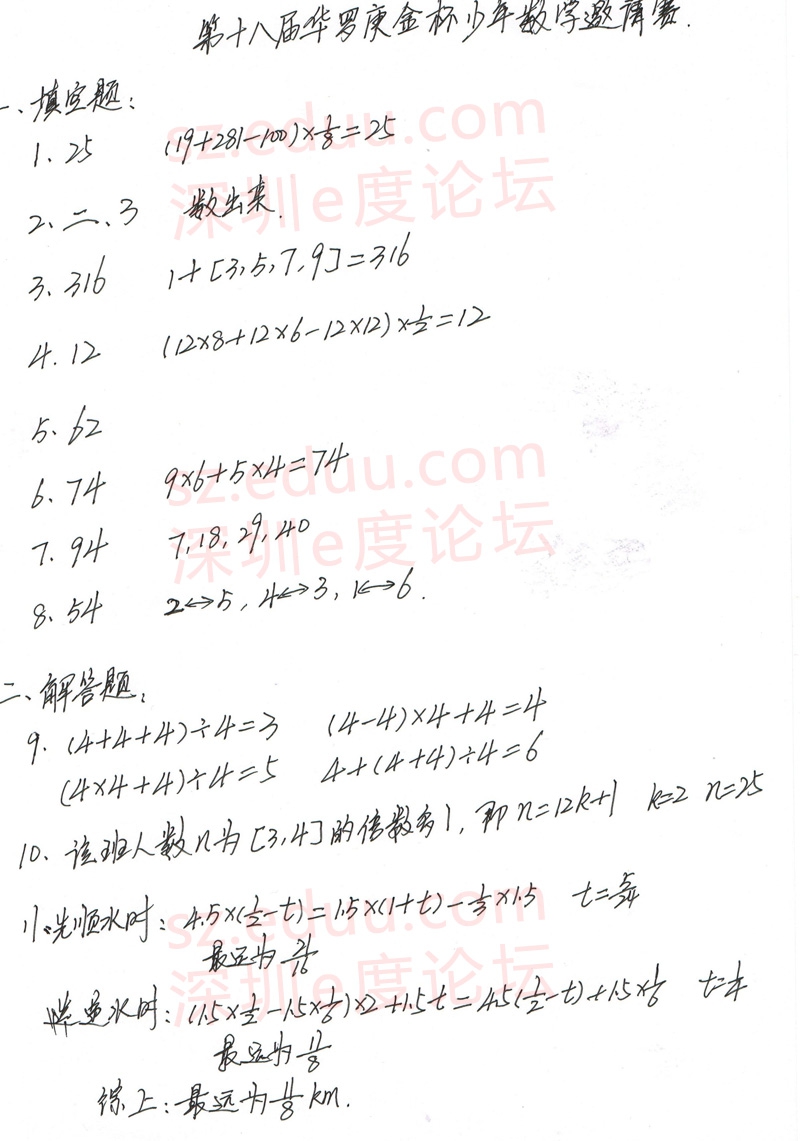 第十八届华罗庚金杯少年数学邀请赛.
一、填空题:
1. 25 (19+281-100)×1/8=25
2. 二、3 数出来.
3. 316 1+[3,5,7,9]=316
4. 12 (12×8+12×6-12×12)×1/2=12
5. 62
6. 74 9×6+5×4=74
7. 94 7,18,29,40
8. 54 2↔5, 4↔3, 1↔6.
二、解答题:
9. (4+4+4)÷4=3 (4-4)×4+4=4
(4×4+4)÷4=5 4+(4+4)÷4=6
10. 该班人数n为[3,4]的倍数多1, 即n=12k+1 k=2 n=25
11. 先顺水时: 4.5×(1/2-t)=1.5×(1+t)-1/3×1.5 t=5/24
最远为21/16
逆水时: (1.5×1/2-1.5×1/6)×2+1.5t=4.5(1/2-t)+1.5×1/6 t=1/4
最远为11/8
综上: 最远为11/8 km.
sz.eduu.com
深圳e度论坛
sz.eduu.com
深圳e度论坛
sz.eduu.com
深圳e度论坛